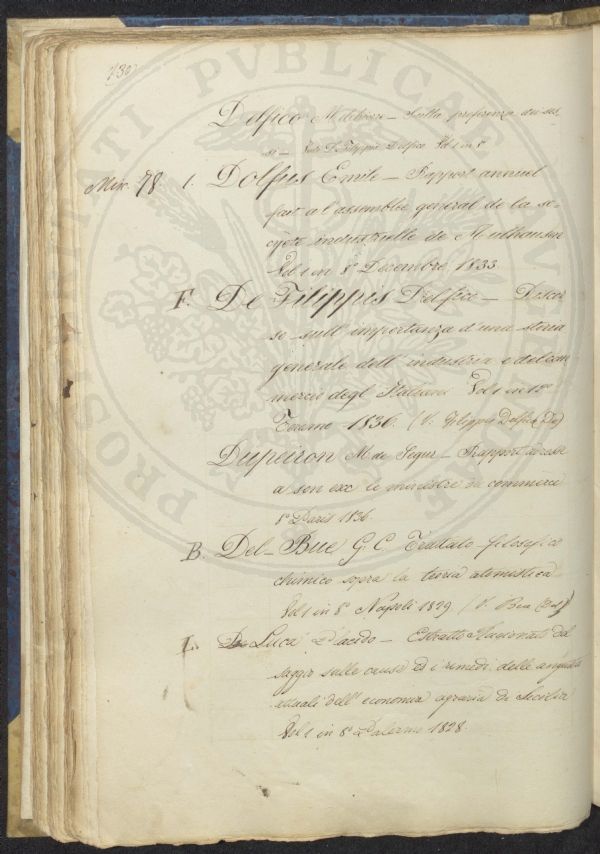 130
PROSPERITATI PVBLICAE
Delfico Melchiorre – Sulla preferenza dei ses-
si – Vedi De Filippis Delfico Vol 1 in 8°
Mix. 78 1. Dolfus Emile – Rapport annuel
fait al assemblee general de la so-
cyete industrielle de Mulhausen
Vol 1 in 8° Decembre 1833.
F. De Filippis Delfico – Discor
so sull' importanza d'una storia
generale dell' industria e del com
mercio degl' Italiani Vol 1 in 12°
Teramo 1836. (V. Filippis Delfico De)
Dupeiron M de Segur – Rapport
a son exc le ministre du commerce
8° Paris 1836
B. Del-Bue G. C. Trattato filosofico
chimico sopra la teoria atomistica
Vol 1 in 8° Napoli 1829 (V. Bue (Del)
L. De Luca Placido – Estratto del
saggio sulle cause ed i rimedi delle angustie
attuali dell' economia agraria di Sicilia
Vol 1 in 8° Palermo 1828.